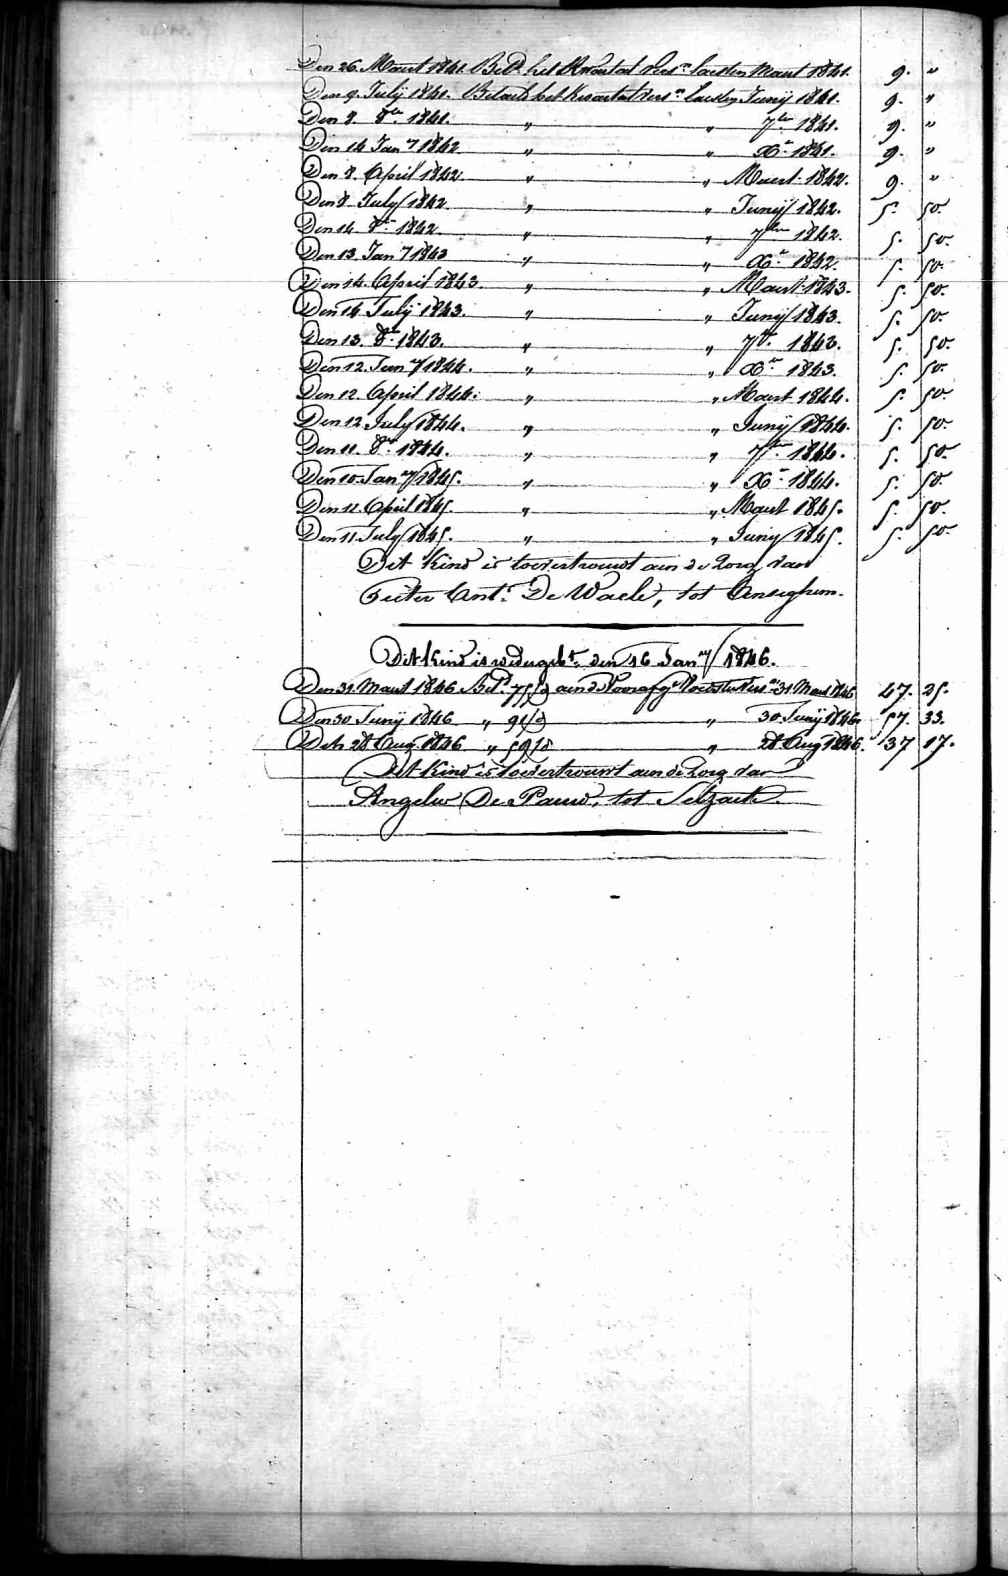 Den 26. Maart 1841. Bet.d het Kwartal vers.n laesten Maart 1841. 9. "
Den 9. Julij 1841. Betaelt het Kwartal vers.n laesten Junij 1841. 9. "
Den 8. 8.br 1841. " " 7.ber 1841. 9. "
Den 14 Jan.y 1842 " " X.r 1841. 9. "
Den 8. April 1842 " " Maert 1842. 9. "
Den 8 July 1842 " " Junij 1842. 5. 50.
Den 14. 8.br 1842 " " 7.ber 1842. 5. 50.
Den 13 Jan.y 1843 " " X.r 1842. 5. 50.
Den 14. April 1843. " " Maart 1843. 5. 50.
Den 14 July 1843. " " Junij 1843. 5. 50.
Den 13. 8.br 1843. " " 7.br 1843. 5. 50.
Den 12. Jan.y 1844. " " X.r 1843. 5. 50.
Den 12. April 1844. " " Maart 1844. 5. 50.
Den 12 July 1844. " " Junij 1844. 5. 50.
Den 11. 8.br 1844. " " 7.ber 1844. 5. 50.
Den 10. Jan.y 1845. " " X.r 1844. 5. 50.
Den 11 April 1845. " " Maart 1845. 5. 50.
Den 11. July 1845. " " Junij 1845. 5. 50.
Dit Kind is toevertrouwt aen de Zorg van
Pieter Ant.e De Waele, tot Anseghem.
Dit Kind is wedergeb.t den 16 Jan.y 1846.
Den 31. Maart 1846 Bet.d 75/d aen d'Voorafg.e Voedster vers.n 31 Maart 1846 47. 25.
Den 30 Junij 1846 " 91/d " 30. Junij 1846 57. 33.
Den 28 Aug. 1846 " 59/d " 28 Aug 1846. 37 17.
Dit Kind is toevertrouwt aen de Zorg van
Angelus De Pauw, tot Selzaete.